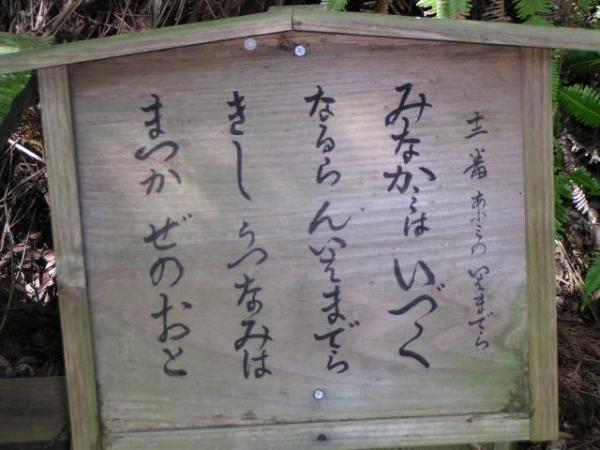 十二番 あふミの いはまでら
みなかミは いづく
なるらんいはまでら
きし うつなみは
まつか ぜのおと